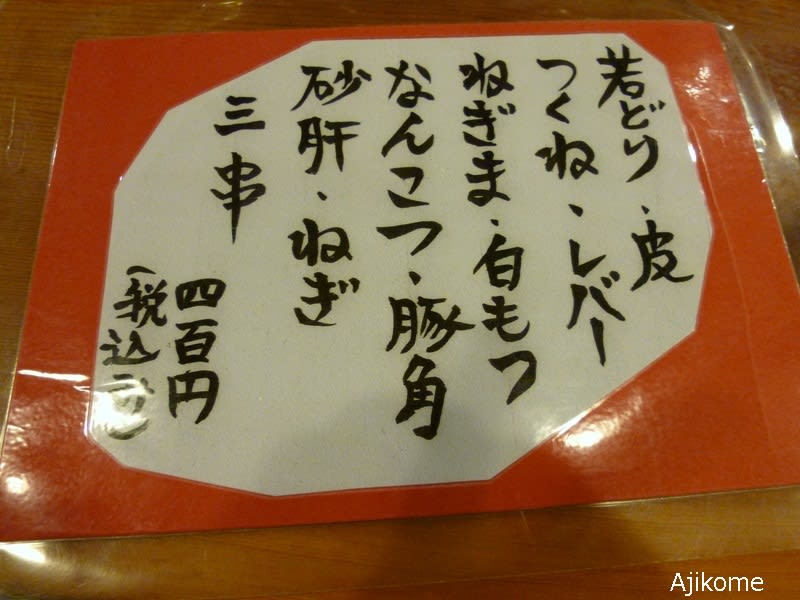 若どり・皮
つくね・レバー
ねぎま・白もつ
なんこつ・豚角
砂肝・ねぎ
三串
四百円
(税込み)
Ajikome